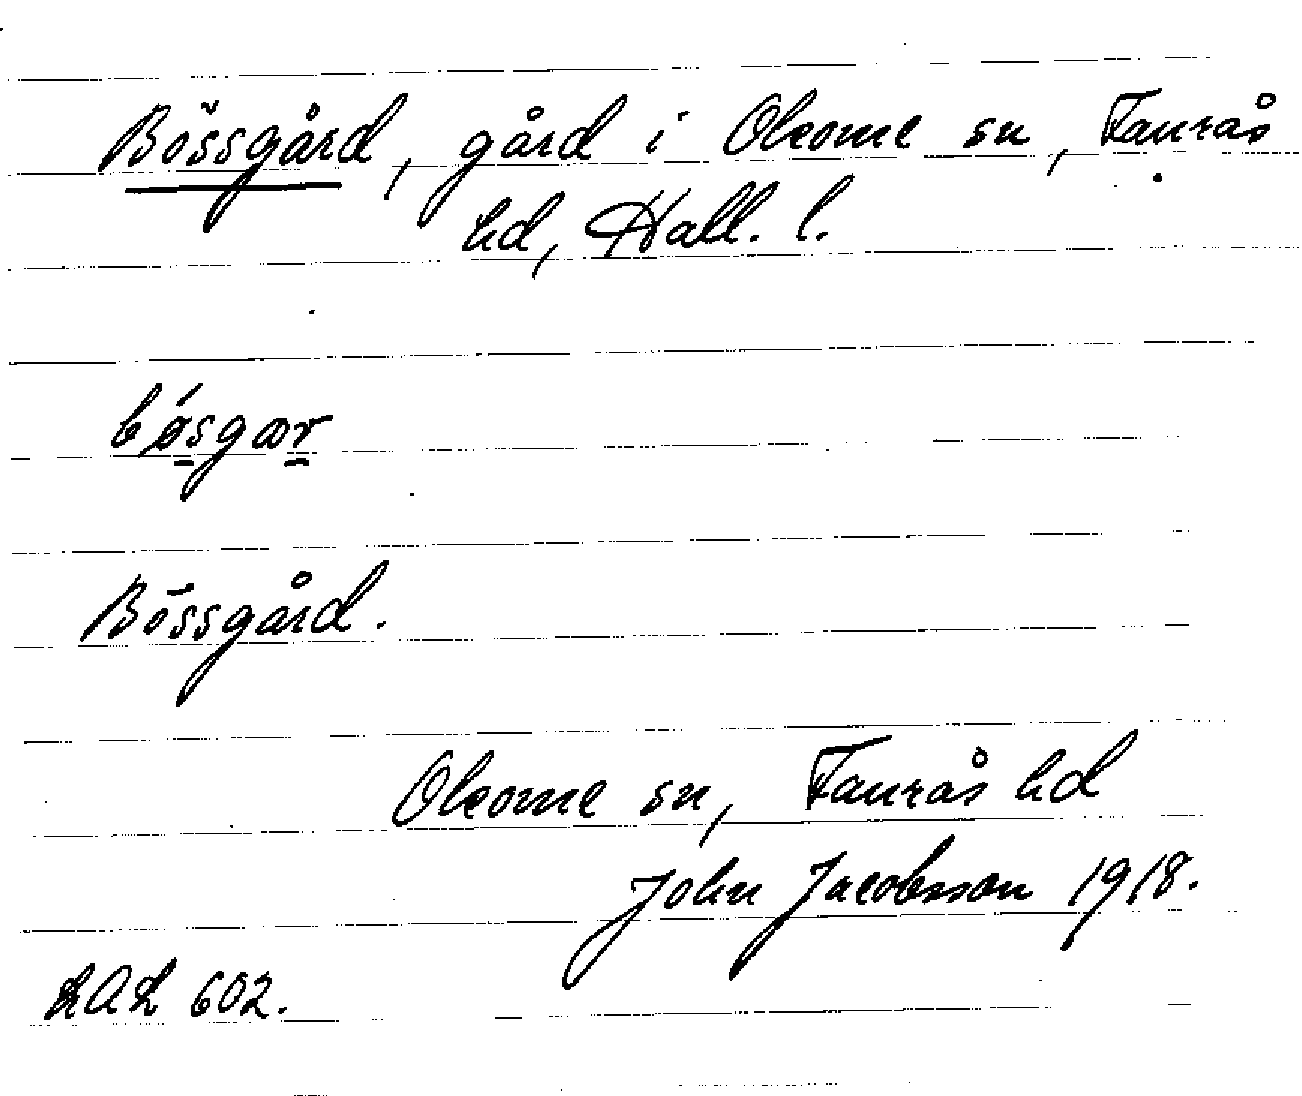 Bössgård, gård i Okome sn, Faurås
hd, Hall. l.
bǿsgar
Bössgård.
Okome sn, Faurås hd
John Jacobsson 1918.
LAL 602.